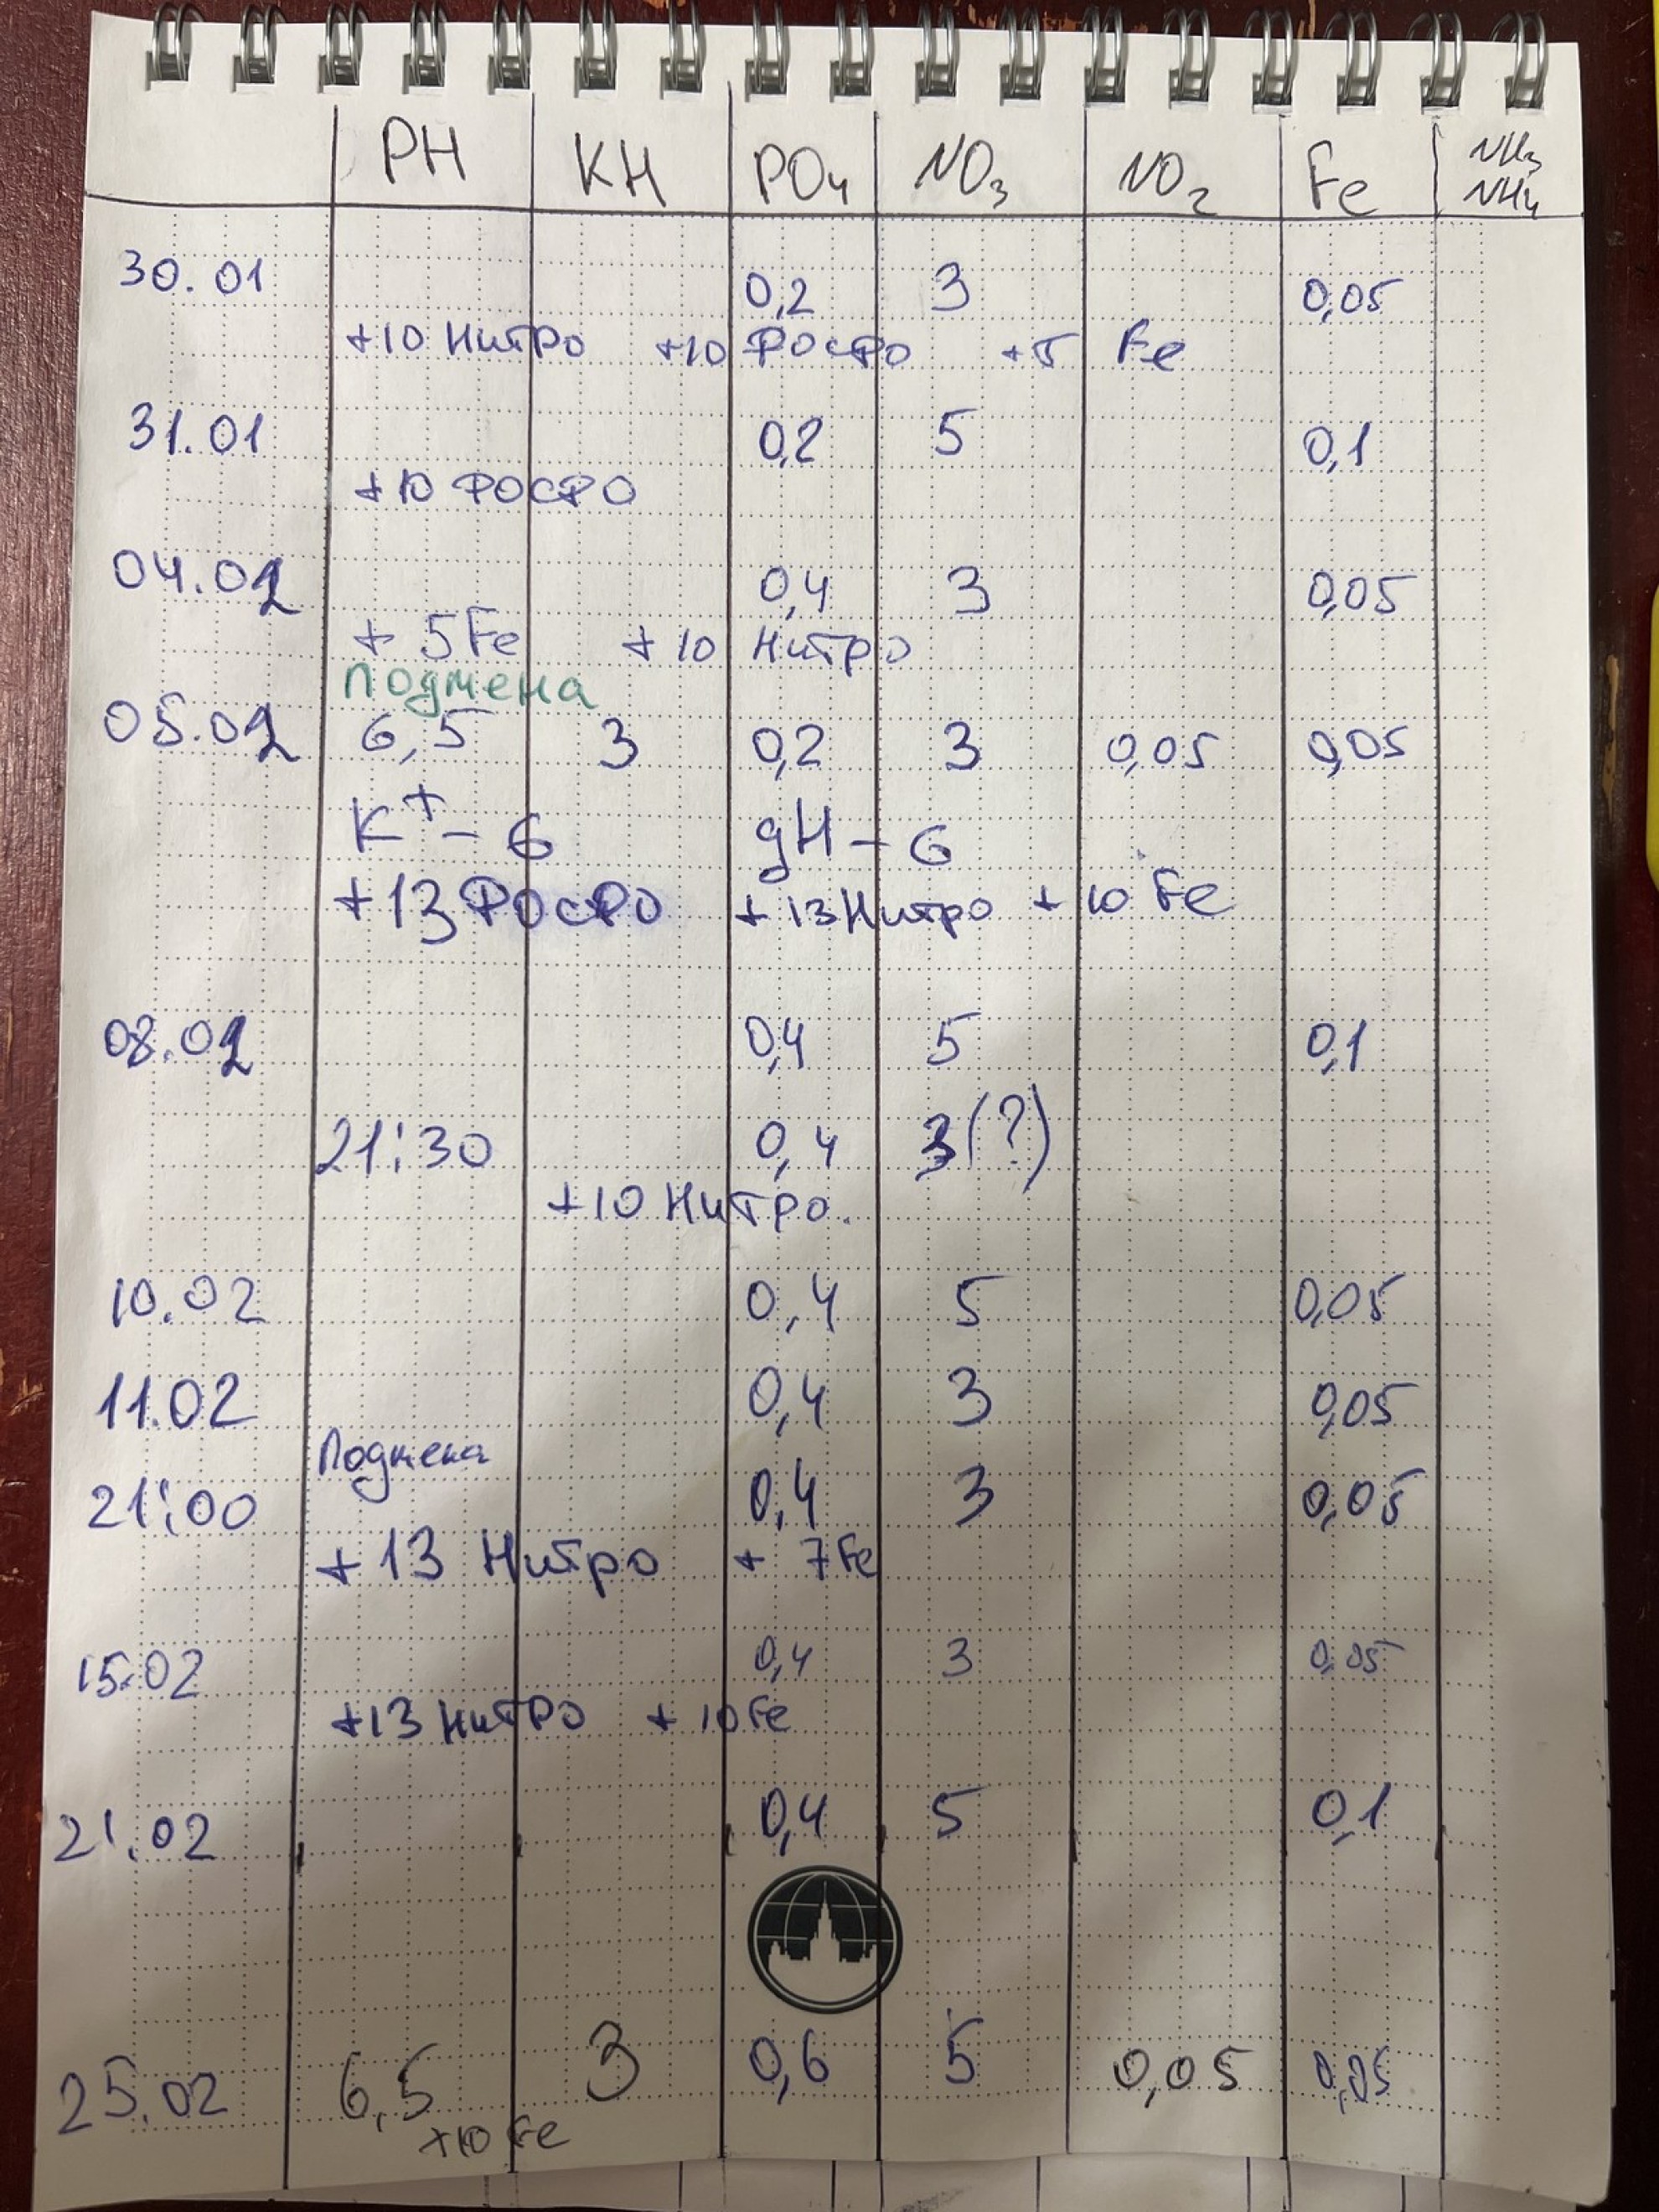 PH KH PO4 NO3 NO2 Fe NH3 NH4
30.01 0,2 3 0,05
+10 Нитро +10 Фосфо +5 Fe
31.01 0,2 5 0,1
+10 Фосфо
04.02 0,4 3 0,05
+ 5Fe +10 Нитро
Подмена
05.02 6,5 3 0,2 3 0,05 0,05
K+ - 6 gH - 6
+13 Фосфо +13 Нитро +10 Fe
08.02 0,4 5 0,1
21:30 0,4 3(?)
+10 Нитро.
10.02 0,4 5 0,05
11.02 0,4 3 0,05
Подмена
21:00 0,4 3 0,05
+13 Нитро + 7Fe
15.02 0,4 3 0,05
+13 Нитро +10Fe
21.02 0,4 5 0,1
25.02 6,5 3 0,6 5 0,05 0,05
+10 Fe